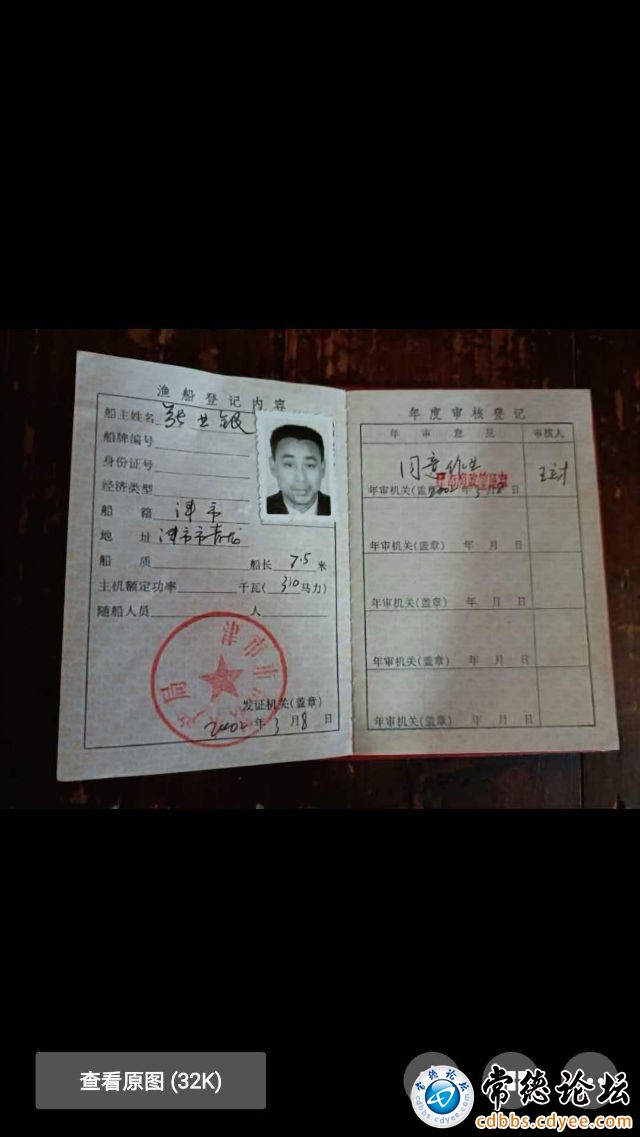 渔船登记内容
船主姓名
船牌编号
身份证号
经济类型
船 籍 津市
地 址 津市市青龙
船 质 船长 7.5 米
主机额定功率 千瓦( 310 马力)
随船人员 人
发证机关(盖章)
2002年3月8日
年度审核登记
年 审 意 见 审核人
同意作业
年审机关(盖章) 2002年3月8日
年审机关(盖章) 年 月 日
年审机关(盖章) 年 月 日
年审机关(盖章) 年 月 日
年审机关(盖章) 年 月 日
查看原图 (32K)
常德论坛
cdbbs.cdyee.com